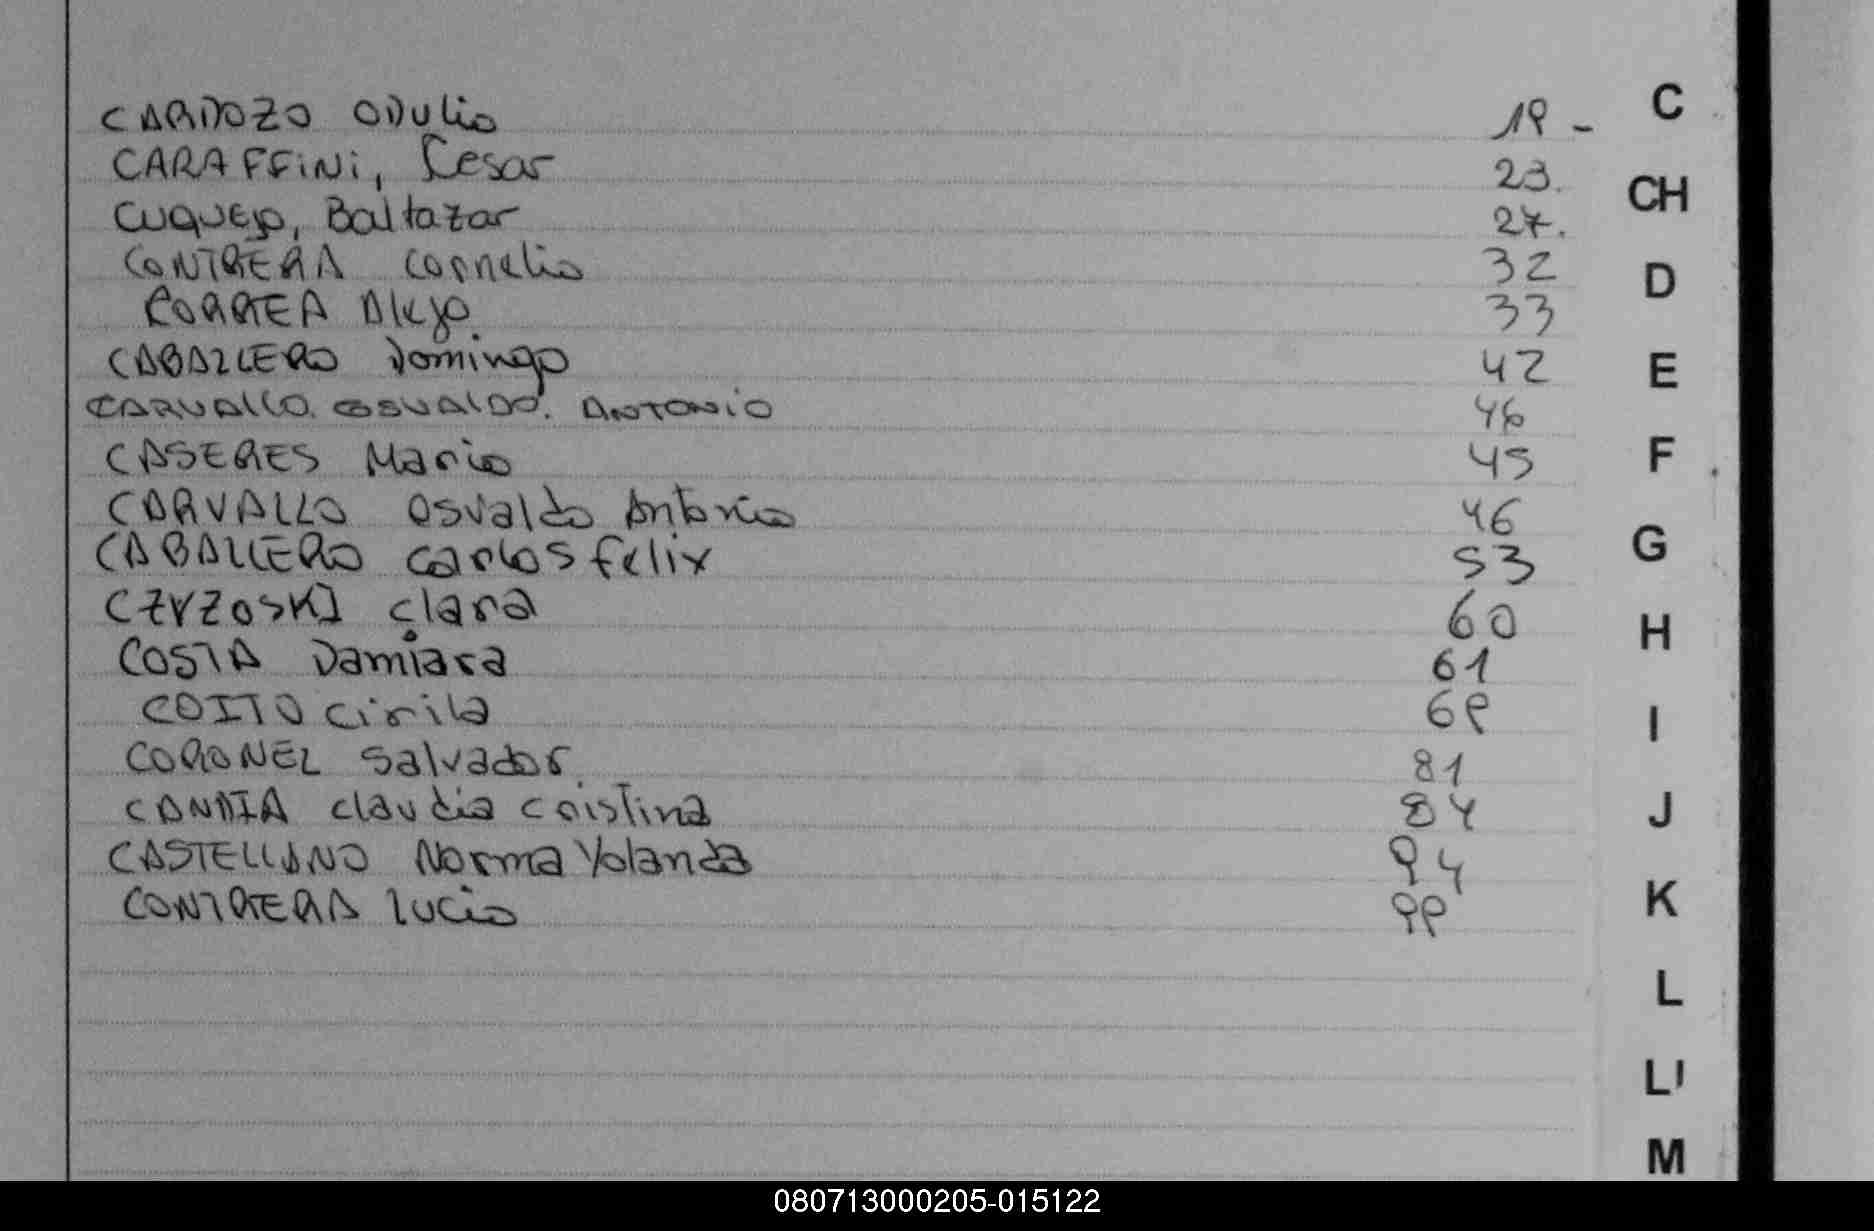 CARDOZO ODULIO 19 -
CARAFFINI, Cesar 23.
CUQUEJO, Baltazar 27.
CONTRERA Cornelio 32
CORREA Alejo 33
CABALLERO Domingo 42
CARVALLO. OSVALDO. ANTONIO 46
CASERES Mario 45
CARVALLO Osvaldo Antonio 46
CABALLERO Carlos felix 53
CZYZOSKI clara 60
COSTA Damiara 61
COITO Cirila 69
CORONEL Salvador 81
CANDIA claudia cristina 84
CASTELLANO Norma Yolanda 94
CONTRERA Lucio 99
C
CH
D
E
F
G
H
I
J
K
L
M
080713000205-015122